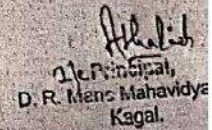 I/c Principal,
D. R. Mane Mahavidya
Kagal.